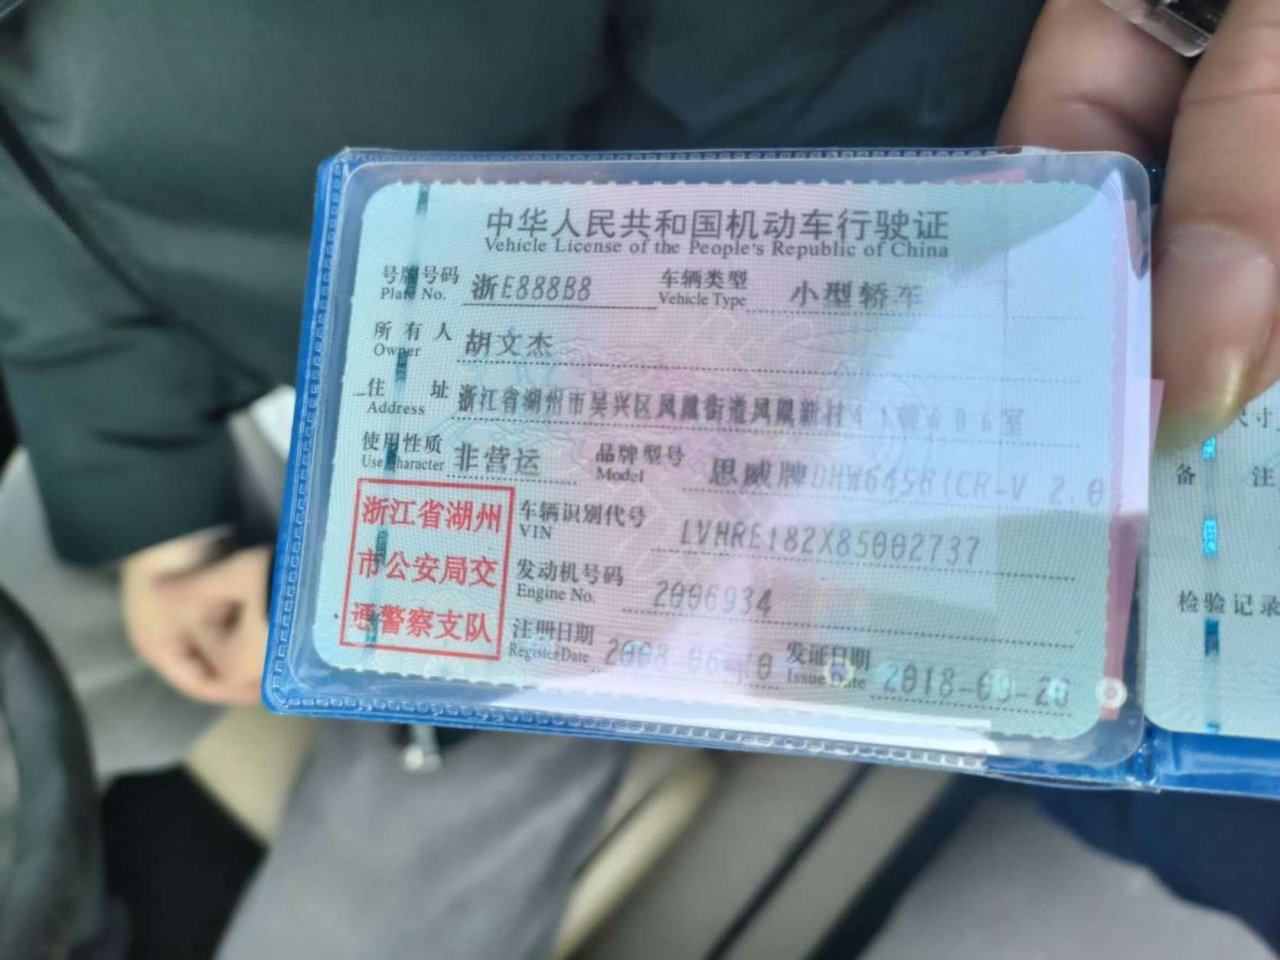 中华人民共和国机动车行驶证
Vehicle License of the People's Republic of China
号牌号码 浙E888B8 车辆类型 小型轿车
Plate No. Vehicle Type
所有人 胡文杰
Owner
住址 浙江省湖州市吴兴区凤凰街道凤凰新村
Address 606室
使用性质 非营运 品牌型号 思威牌DHW6456(CR-V 2.0
Use Character Model
浙江省湖州
市公安局交
通警察支队
车辆识别代号 LVHRE182X85002737
VIN
发动机号码 2006934
Engine No.
注册日期 2008-06-10 发证日期 2018-09-20
Register Date Issue Date
备注
检验记录